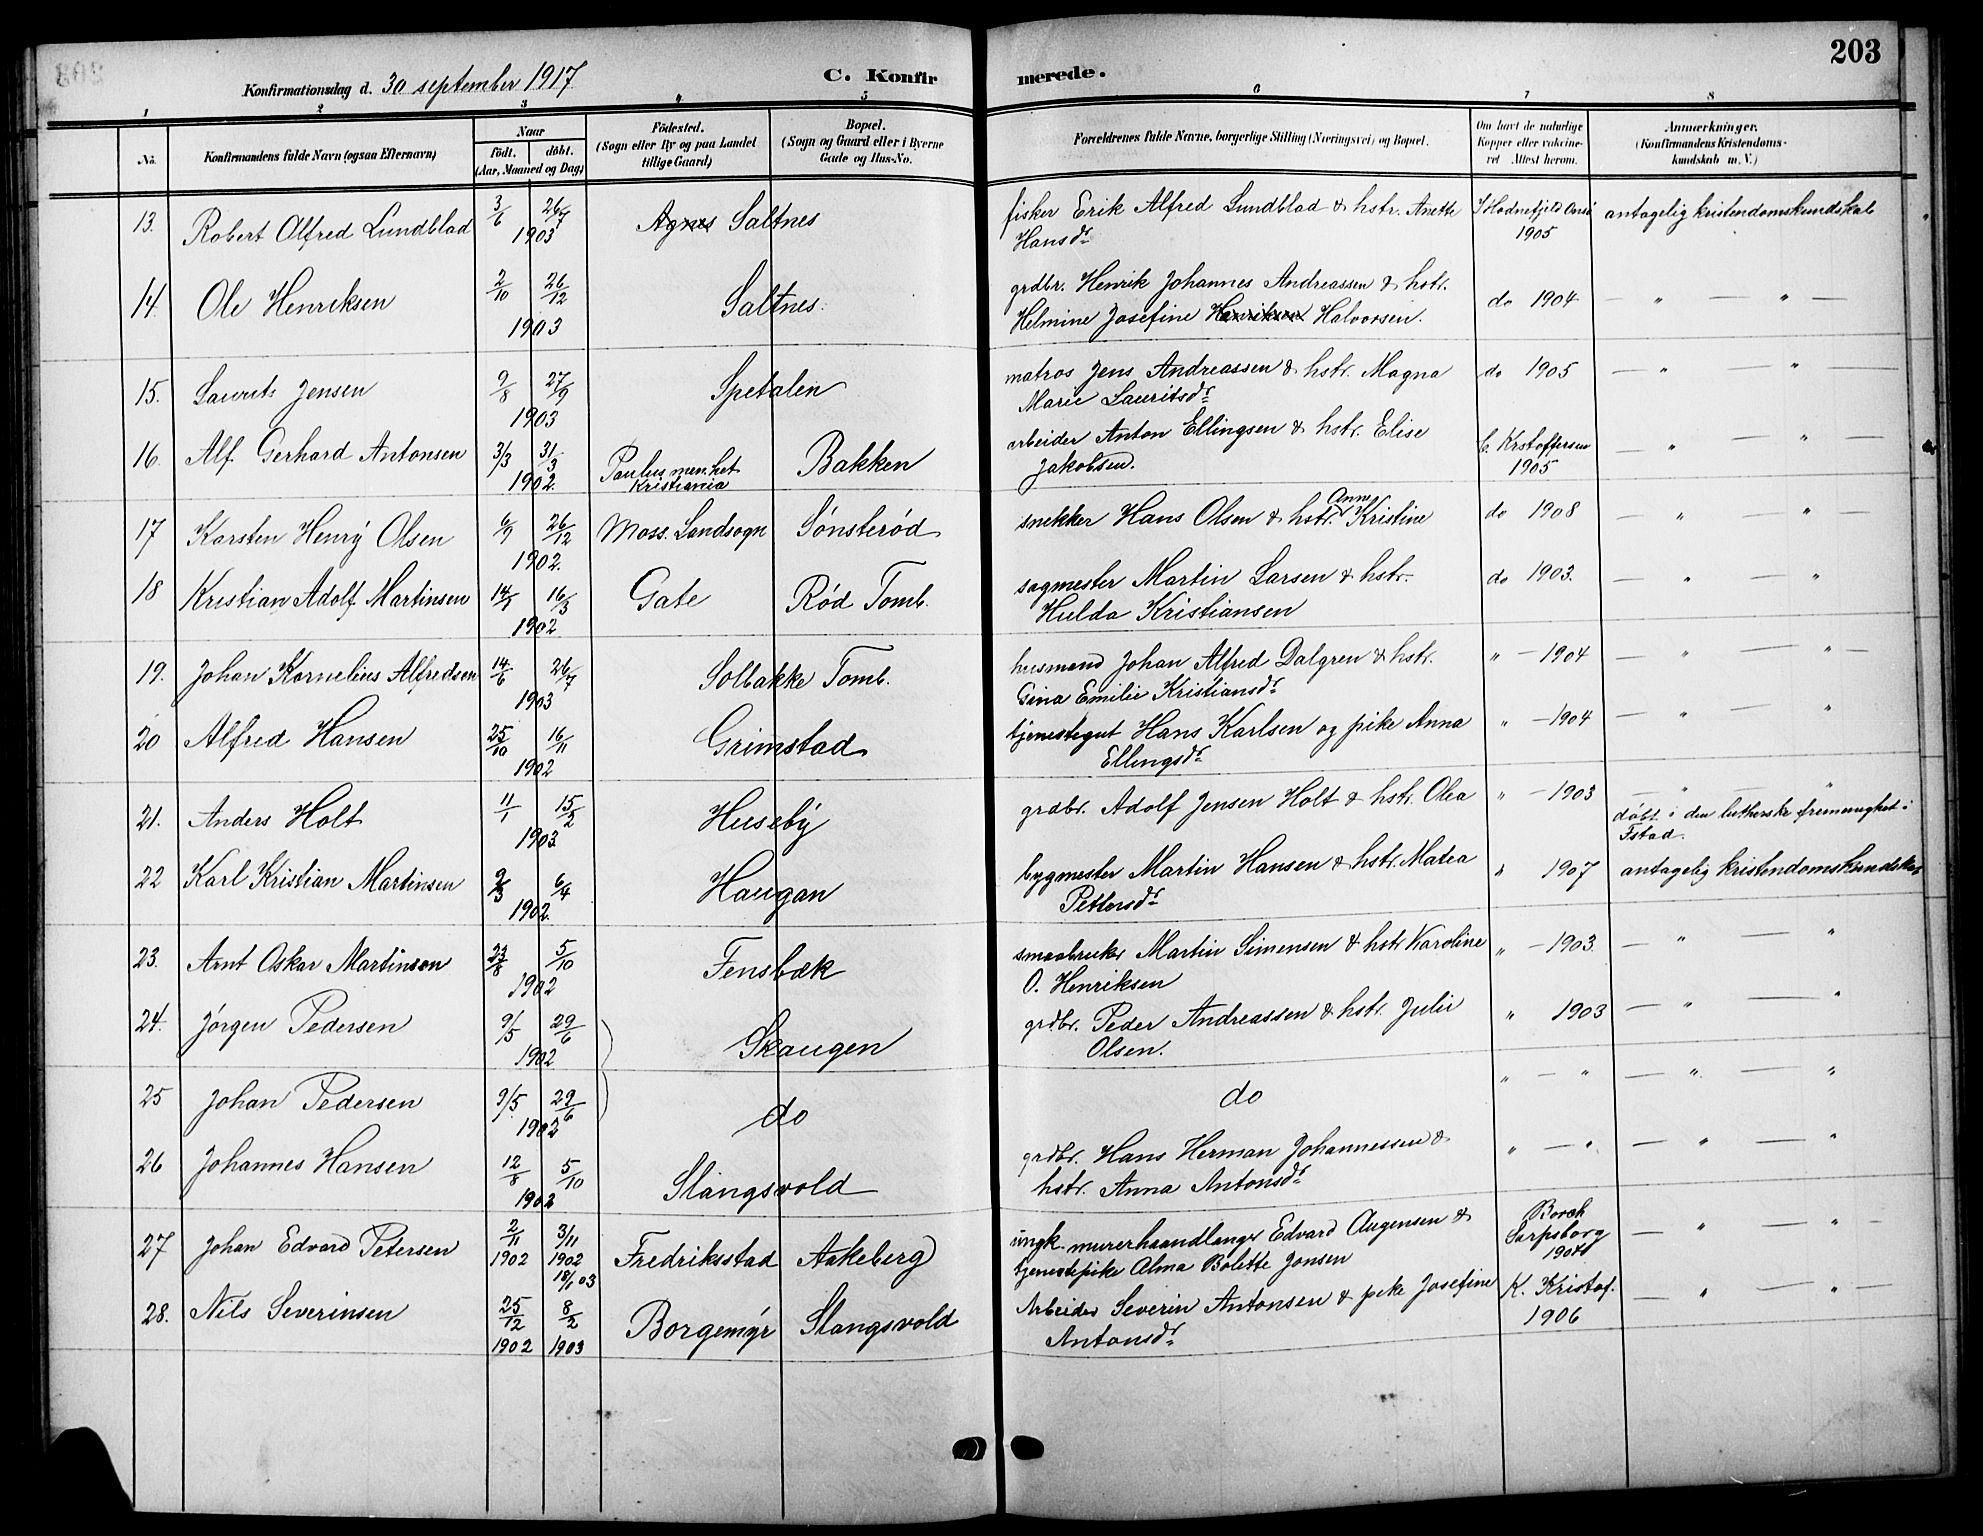 203
Konfirmationsdag d. 30 september 1917
C. Konfirmerede.
1 2 3 4 5 6 7 8
No.
Konfirmandens fulde Navn (ogsaa Efternavn)
Naar
født. døbt.
(Aar, Maaned og Dag)
Fødested.
(Sogn eller By og paa Landet
tillige Gaard)
Bopæl.
(Sogn og Gaard eller i Byerne
Gade og Hus-No.
Forældrenes fulde Navne, borgerlige Stilling (Næringsvei) og Bopæl.
Om havt de naturlige
Kopper eller vakcine-
ret Attest herom.
Anmærkninger.
(Konfirmandens Kristendoms-
kundskab m. V.)
13. Robert Alfred Lundblad 3/6 26/7 1903 Agnes Saltnes fisker Erik Alfred Lundblad & hstr. Anette J Hodnefjeld Onsø antagelig kristendomskundskab
Hansdr 1905
14. Ole Henriksen 2/10 26/12 1903 Saltnes. grdbr. Henrik Johannes Andreassen & hstr. do 1904 — " — " —
Helmine Josefine Henriksen Halvorsen.
15. Laurits Jensen 9/8 27/9 1903 Spetalen matros Jens Andreassen & hstr. Magna do 1905 — " — "
Marie Lauritsdr
16. Alf Gerhard Antonsen 3/3 31/3 1902. Paulus menhet Bakken arbeider Anton Ellingsen & hstr. Elise C. Kristoffersen — " — " —
Kristiania Jakobsen. 1905
17 Karsten Henry Olsen 6/9 26/12 1902. Moss. Landsogn Sønsterød snekker Hans Olsen & hstr. Anne Kristine do 1908 — " — " —
18 Kristian Adolf Martinsen 14/1 16/3 1902 Gate Rød Tomb. sagmester Martin Larsen & hstr. do 1903. — " — "
Hulda Kristiansen
19. Johan Kornelius Alfredsen 14/6 26/7 1903 Solbakke Tomb. husmand Johan Alfred Dalgren & hstr. " — 1904 — " — " —
Gina Emilie Kristiansdr
20 Alfred Hansen 25/10 16/11 1902 Grimstad tjenestegut Hans Karlsen og pike Anna " — 1904 — " — "
Ellingsdr
21. Anders Holt 11/1 15/2 1903 Huseby grdbr. Adolf Jensen Holt & hstr. Olea " — 1903 — " — "
døbt i den lutherske frimenighet i
Fstad.
22 Karl Kristian Martinsen 2/3 6/4 1902. Haugan bygmester Martin Hansen & hstr. Matea " 1907 antagelig kristendomskundskab
Pettersdr
23. Arnt Oskar Martinsen 23/8 5/10 1902 Fensbæk smaabruker Martin Simensen & hstr Karoline " — 1903. — " — "
O. Henriksen
24. Jørgen Pedersen 9/5 29/6 1902 Skaugen grdbr. Peder Andreassen & hstr. Julie " 1903 — " — "
Olsen.
25 Johan Pedersen 9/5 29/6 1902 do do " — " — " — "
26 Johannes Hansen 12/8 5/10 1902 Slangsvold grdbr. Hans Herman Johannessen & " — " — " — "
hstr. Anna Antonsdr
27 Johan Edvard Petersen 2/11 1902 3/11 1902 18/1 03 Fredriksstad Aakeberg ungk. murerhaandlanger Edvard Augensen & Borch — " — " —
tjenestepike Alma Bolette Jonsen Sarpsborg
1904
28. Nils Severinsen 25/12 1902 8/2 1903 Borgemyr Slangsvold Arbeider Severin Antonsen & pike Josefine K. Kristof. — " — " —
Antonsdr 1906